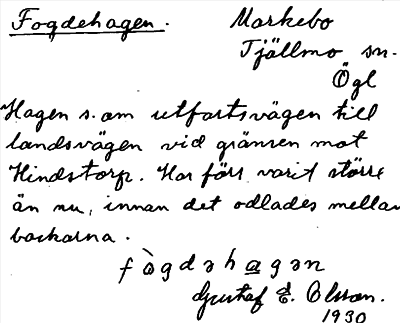 Fogdehagen. Markebo
Tjällmo sn.
Ögl
Hagen s.om utfartsvägen till
landsvägen vid gränsen mot
Hindstorp. Har förr varit större
än nu, innan det odlades mellan
backarna.
fògdəhagən
Gustaf E. Olsson.
1930